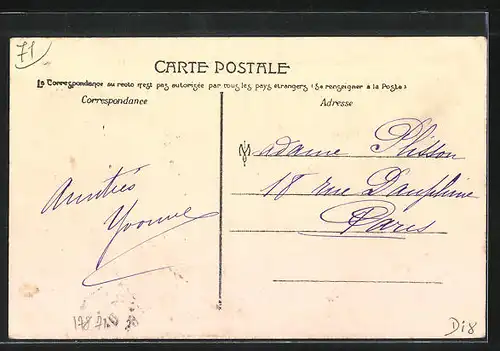 71
CARTE POSTALE
La Correspondance au recto n'est pas autorisée par tous les pays étrangers (Se renseigner à la Poste)
Correspondance
Adresse
Madame Plisson
18 rue Dauphine
Paris
Amitiés
Yvonne
Di8